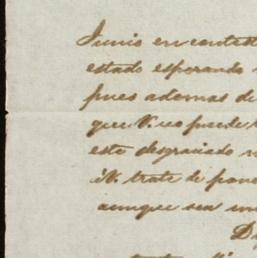 Junio en contest
estado esperando
pues ademas de
que V. no puede
este desgraciado
V. trate de pone
aunque sea un
D